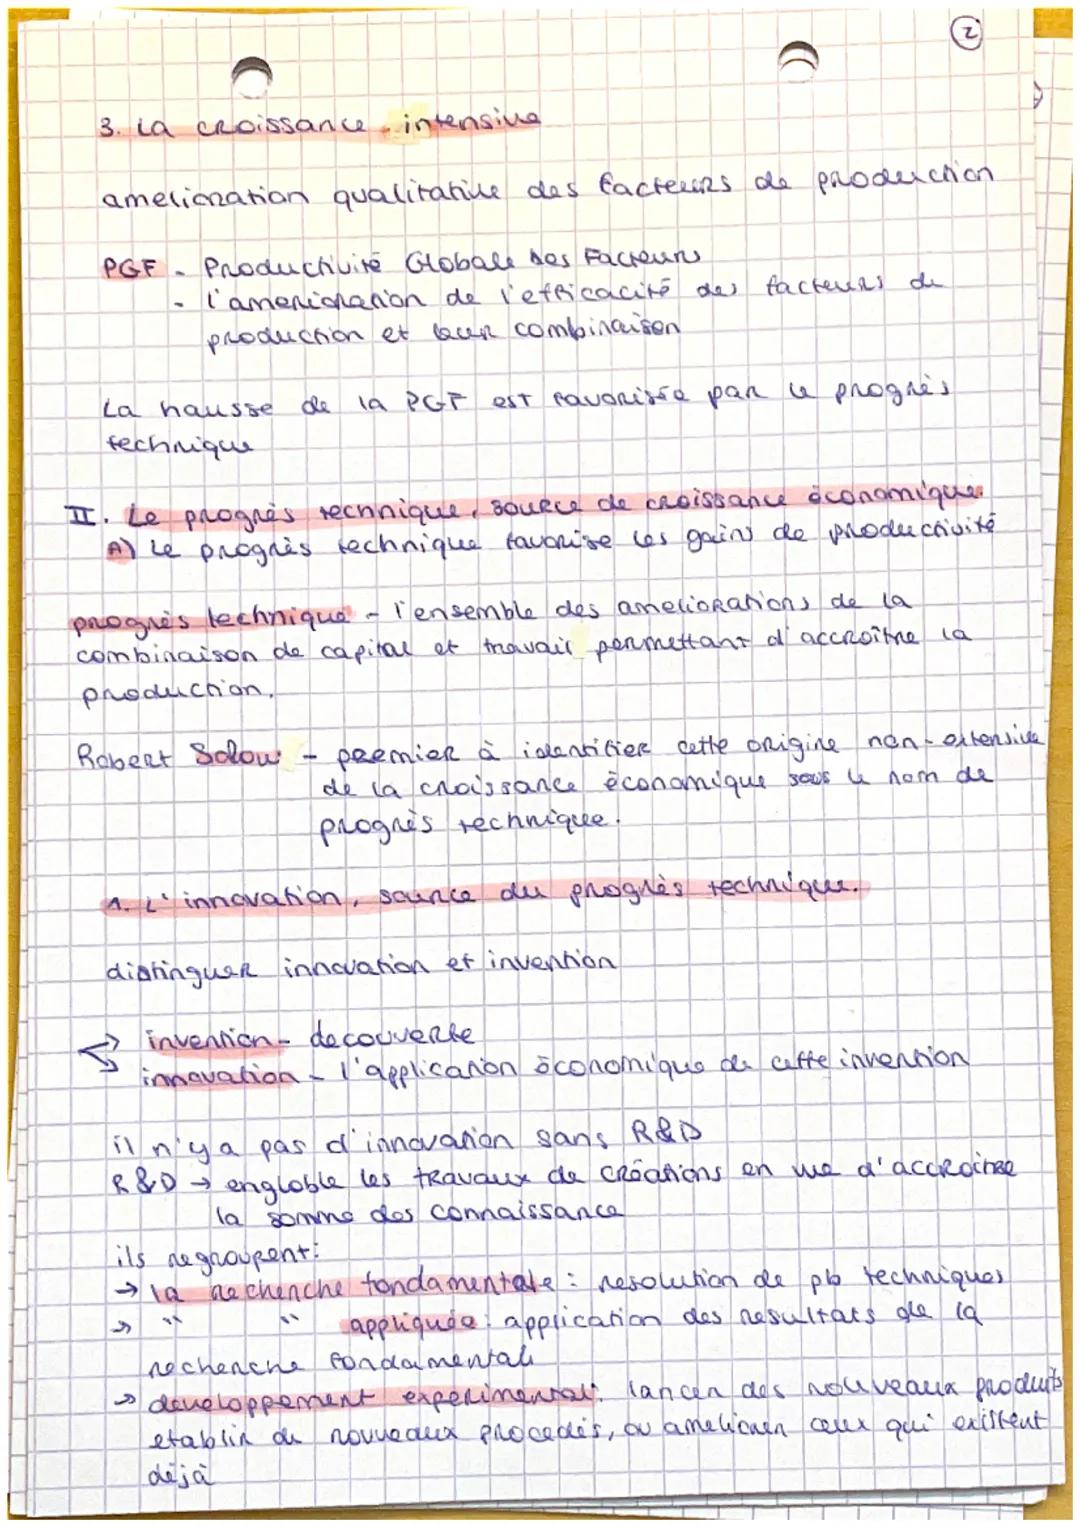 2
3. La croissance intensive
amelioration qualitative des facteurs de production
PGF - Productivité Globale des Facteurs
- l'amerioration de l'efficacité des facteurs de
production et leur combinaison
La hausse de la PGF est favorisée par le progrès
technique
II. Le progrès technique, source de croissance économique.
A) Le progrès technique favorise les gains de productivité
progrès technique - l'ensemble des ameliorations de la
combinaison de capital et travail permettant d'accroître la
production.
Robert Solow - premier à identifier cette origine non-extensive
de la croissance économique sous le nom de
progrès technique.
1. L'innovation, source du progrès technique.
distinguer innovation et invention
→ invention - decouverte
→ innovation - l'application économique de cette invention
il n'y a pas d'innovation sans R&D
R&D → engloble les travaux de créations en vue d'accroitre
la somme des connaissance
ils regroupent:
→ la recherche fondamentale : resolution de pb techniques
→ " " appliquée : application des resultats de la
recherche fondamentale
→ developpement experimental: lancer des nouveaux produits
etablir de nouveaux procedés, ou ameliorer ceux qui existent
déjà